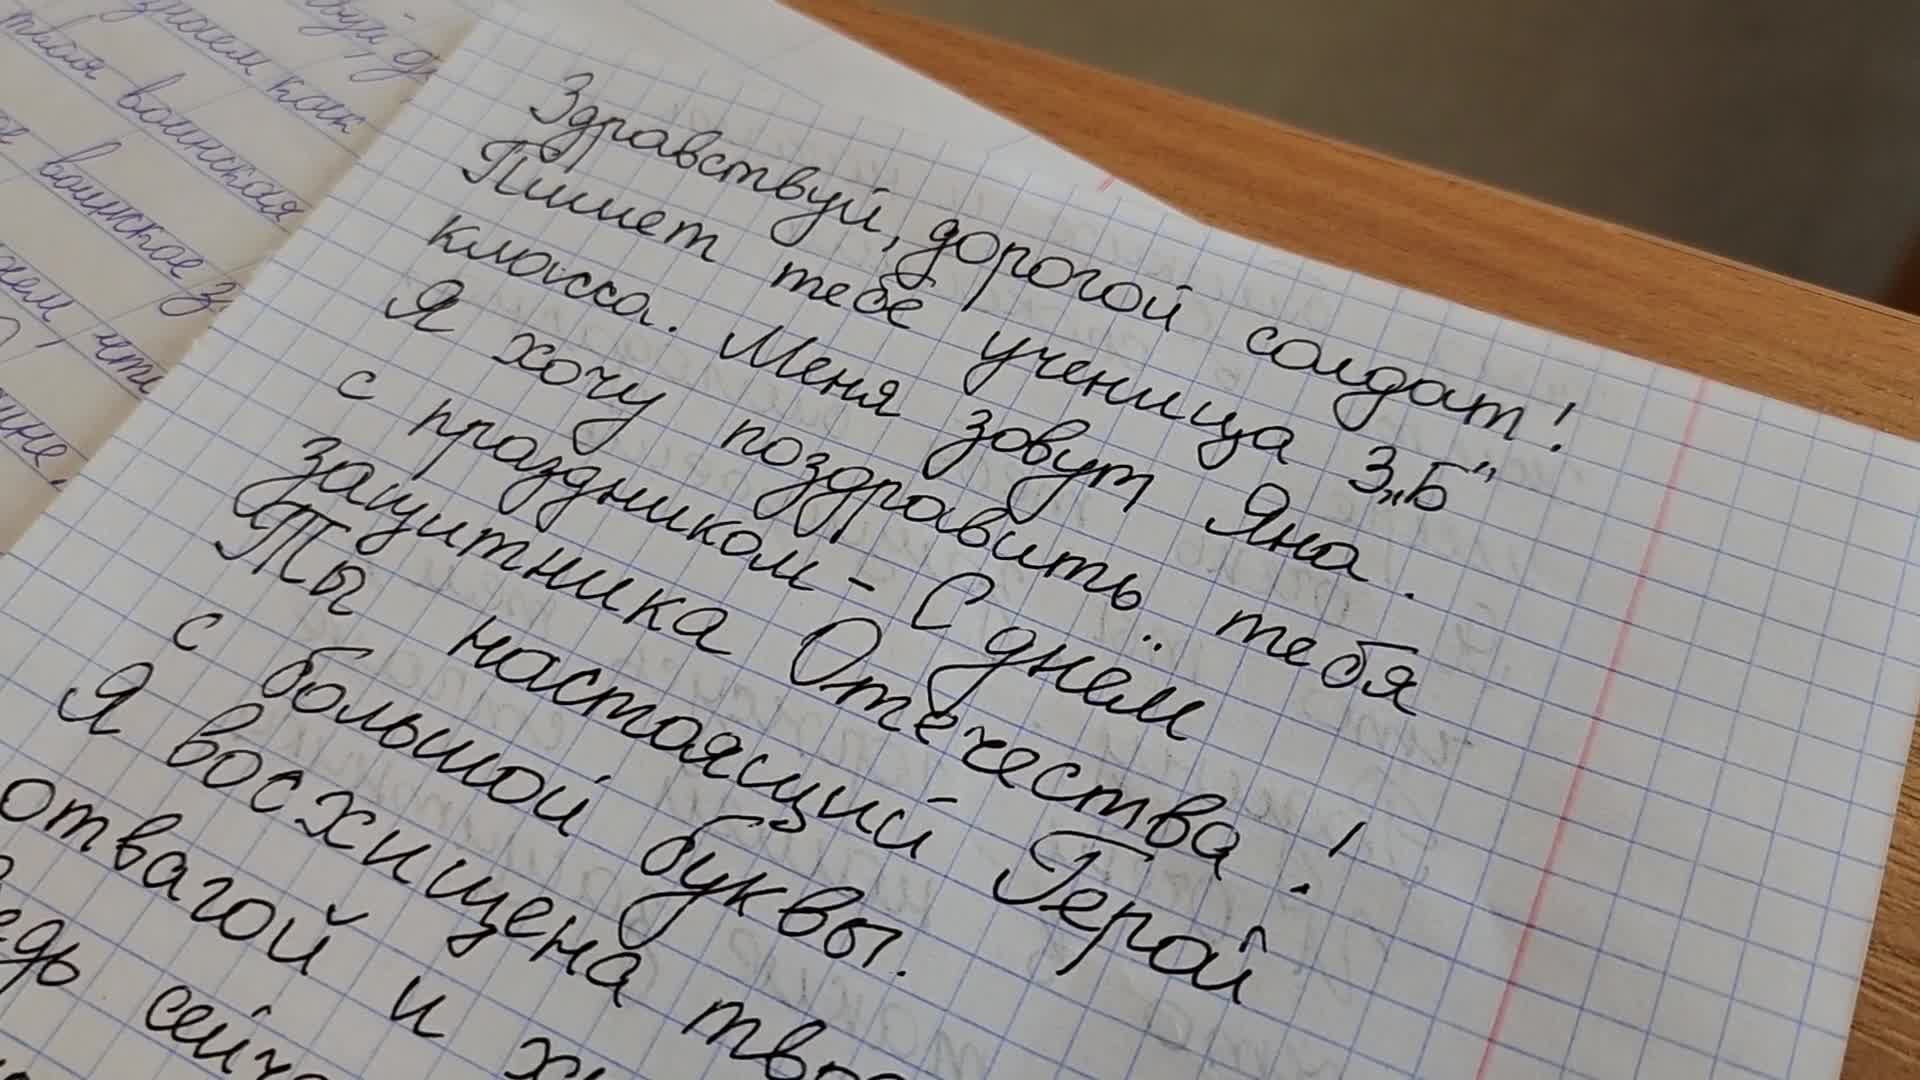 Здравствуй, дорогой солдат!
Пишет тебе ученица 3„Б"
класса. Меня зовут Яна.
Я хочу поздравить тебя
с праздником - С днём
защитника Отечества!
Ты настоящий Герой
с большой буквы.
Я восхищена
отвагой и
знаем как
воинская
воинское